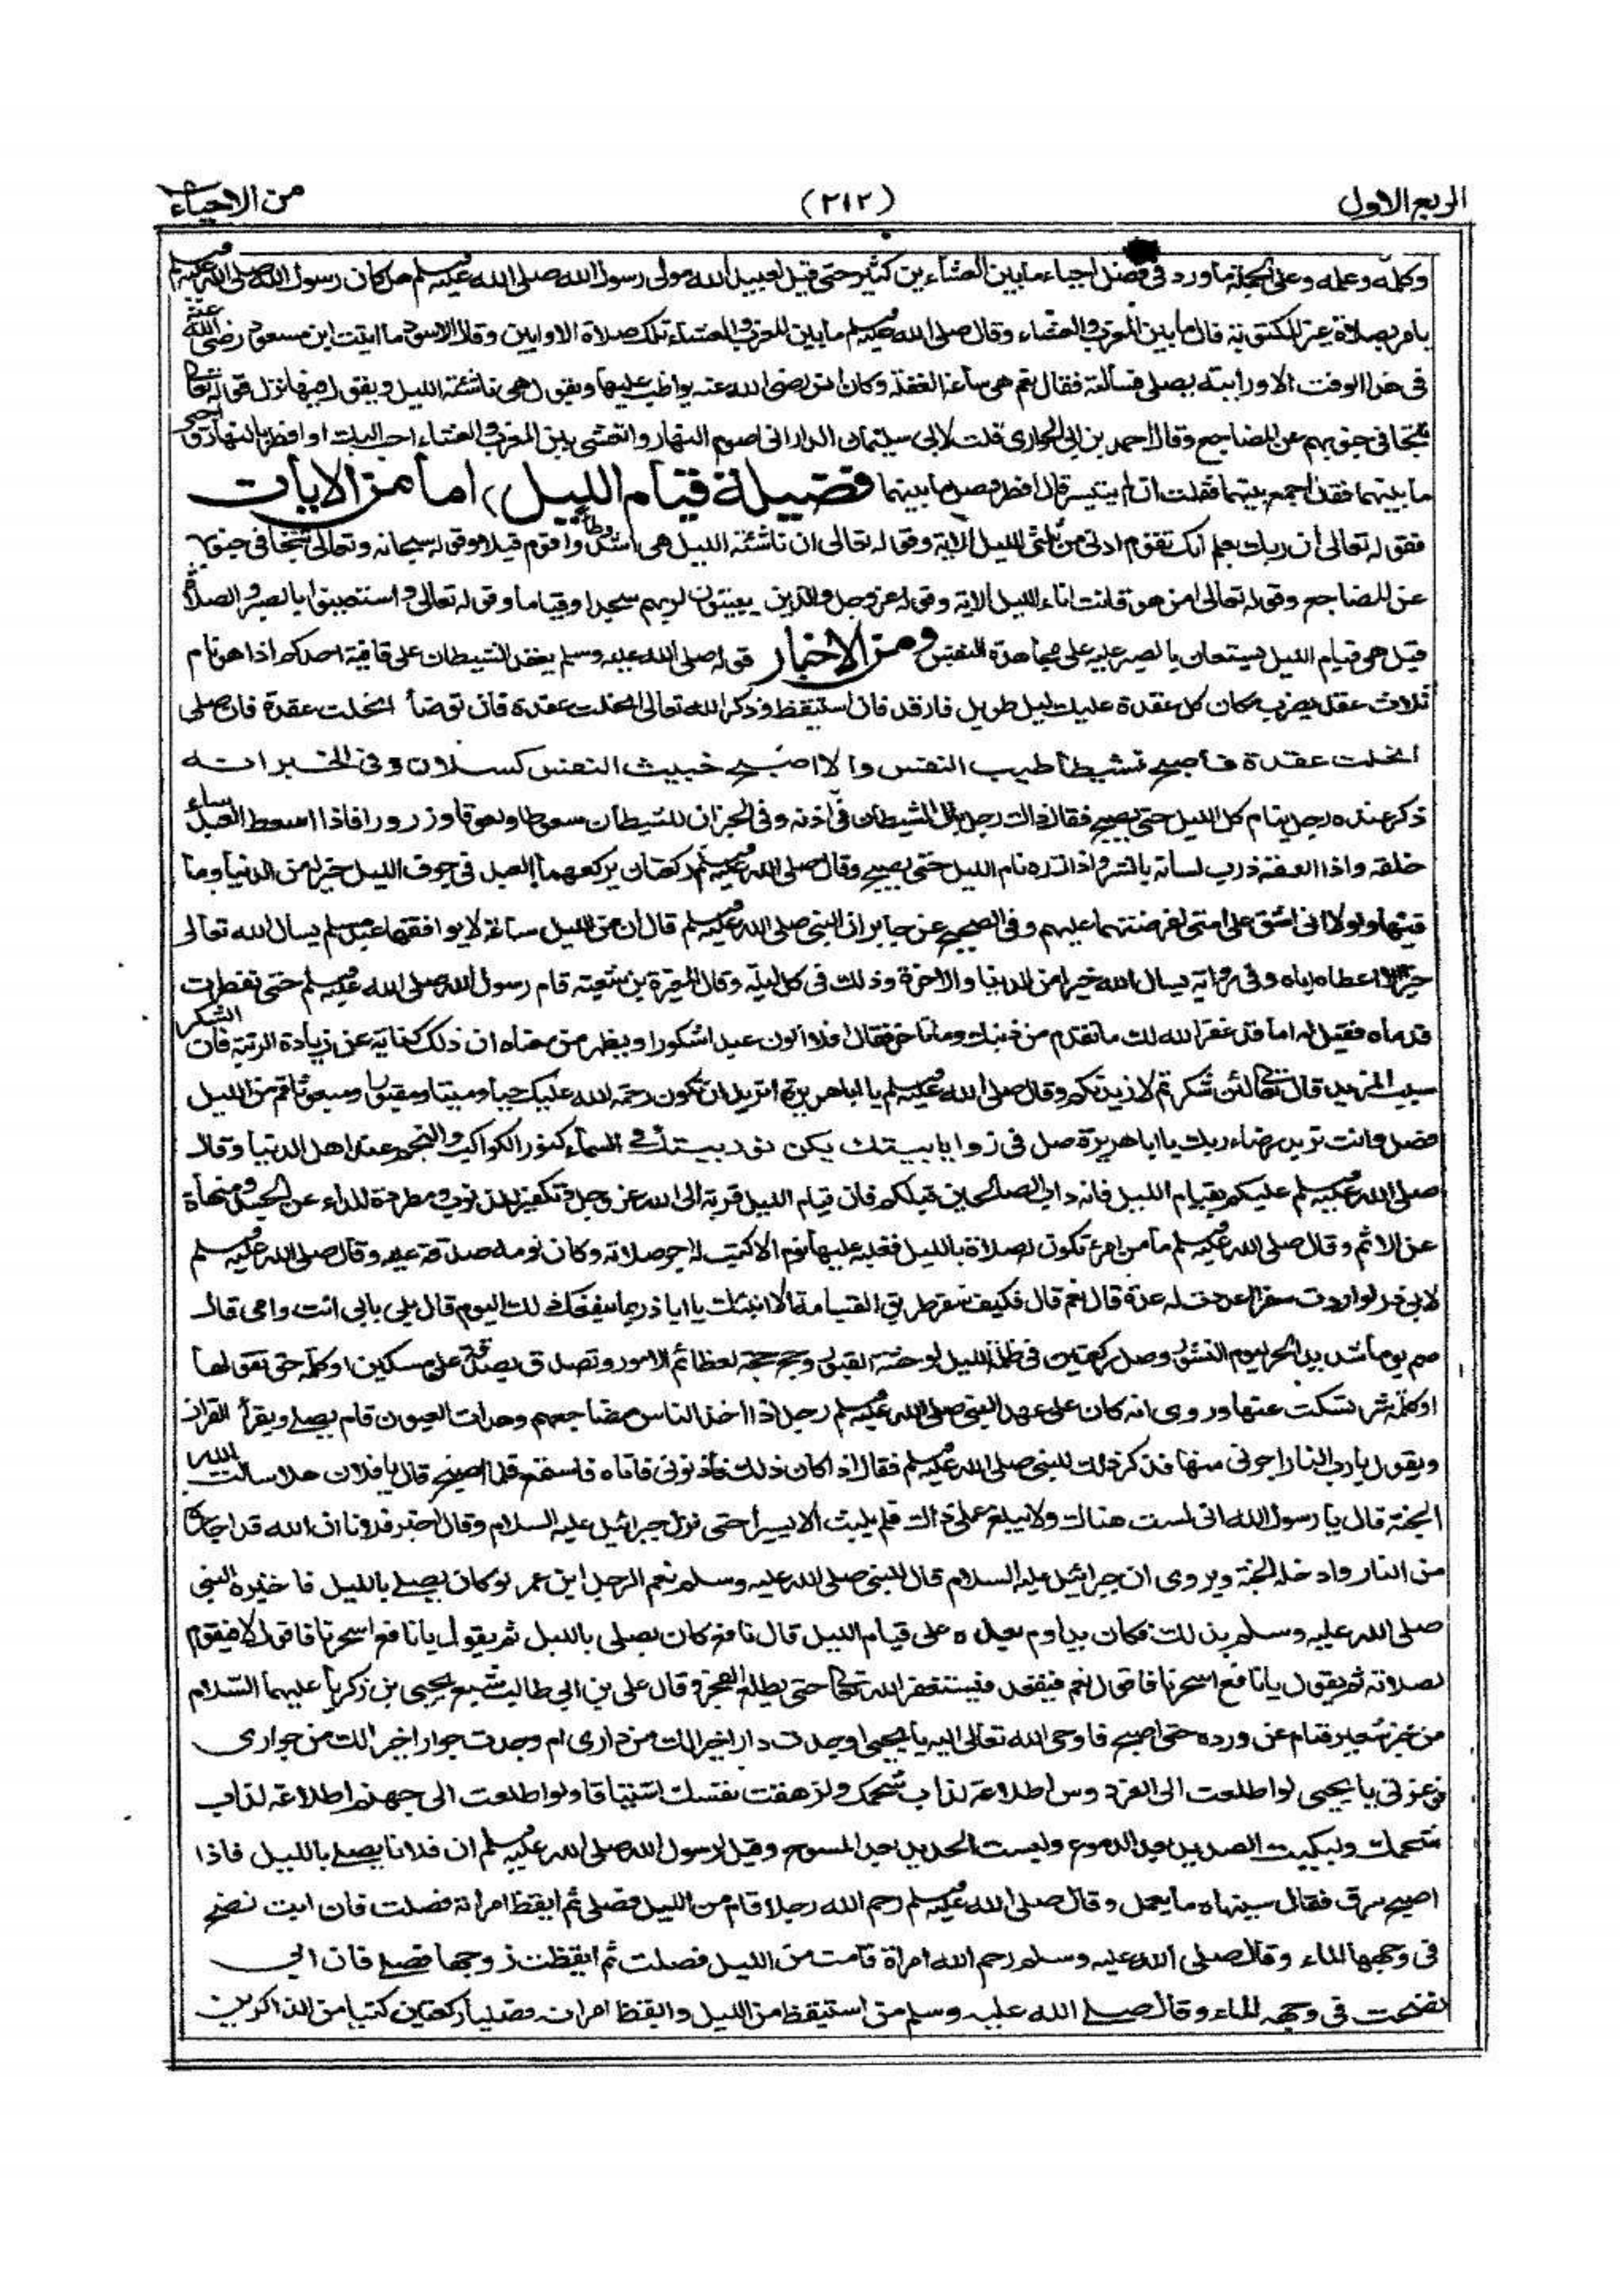 الربع الاول (٢١٢) من الاحياء
وكلمه وعلمه وعلى الجملة ما ورد في فضل احياء ما بين العشاءين كثير حتى قيل لعبيد الله مولى رسول الله صلى الله عليه وسلم هل كان رسول الله صلى الله عليه وسلم
يامر بصلاة غير المكتوبة قال ما بين المغرب والعشاء وقال صلى الله عليه وسلم ما بين المغرب والعشاء تلك صلاة الاوابين وقال الاسود ما اتيت ابن مسعود رضي الله عنه
في هذا الوقت الا ورايته يصلي فسالته فقال نعم هي ساعة الغفلة وكان انس رضي الله عنه يواظب عليها ويقول هي ناشئة الليل ويقول فيها نزل قوله تعالى
تتجافى جنوبهم عن المضاجع وقال احمد بن ابي الحواري قلت لابي سليمان الداراني اصوم النهار واتعشى بين المغرب والعشاء احب اليك او افطر بالنهار واحيي
ما بينهما فقال اجمع بينهما فقلت ان لم يتيسر قال افطر وصل ما بينهما فضيلة قيام الليل، اما من الايات
فقوله تعالى ان ربك يعلم انك تقوم ادنى من ثلثي الليل الاية وقوله تعالى ان ناشئة الليل هي اشد وطأ واقوم قيلا وقوله سبحانه وتعالى تتجافى جنوبهم
عن المضاجع وقوله تعالى امن هو قانت اناء الليل الاية وقوله عز وجل والذين يبيتون لربهم سجدا وقياما وقوله تعالى واستعينوا بالصبر والصلاة
قيل هي قيام الليل يستعان بالصبر عليه على مجاهدة النفس ومن الاخبار قوله صلى الله عليه وسلم يعقد الشيطان على قافية احدكم اذا هو نام
ثلاث عقد يضرب مكان كل عقدة عليك ليل طويل فارقد فان استيقظ وذكر الله تعالى انحلت عقدة فان توضأ انحلت عقدة فان صلى
انحلت عقدة فاصبح نشيطا طيب النفس والا اصبح خبيث النفس كسلان وفي الخبر انه
ذكر عنده رجل ينام كل الليل حتى يصبح فقال ذاك رجل بال الشيطان في اذنه وفي الخبر ان للشيطان سعوطا ولعوقا وذرورا فاذا اسعط العبد ساء
خلقه واذا العقه ذرب لسانه بالشر واذا ذره نام الليل حتى يصبح وقال صلى الله عليه وسلم ركعتان يركعهما العبد في جوف الليل خير له من الدنيا وما
فيها ولولا اني اشق على امتي لفرضتهما عليهم وفي الصحيح عن جابر ان النبي صلى الله عليه وسلم قال ان من الليل ساعة لا يوافقها عبد مسلم يسال الله تعالى
خيرا الا اعطاه اياه وفي رواية يسال الله خيرا من الدنيا والاخرة وذلك في كل ليلة وقال المغيرة بن شعبة قام رسول الله صلى الله عليه وسلم حتى تفطرت
قدماه فقيل له اما قد غفر الله لك ما تقدم من ذنبك وما تاخر فقال افلا اكون عبدا شكورا ويظهر من معناه ان ذلك كناية عن زيادة الرتبة فان الشكر
سبب المزيد قال تعالى لئن شكرتم لازيدنكم وقال صلى الله عليه وسلم يا ابا هريرة اتريد ان تكون رحمة الله عليك حيا وميتا ومقبورا ومبعوثا قم من الليل
فصل وانت تريد رضاء ربك يا ابا هريرة صل في زوايا بيتك يكن نور بيتك في السماء كنور الكواكب والنجم عند اهل الدنيا وقال
صلى الله عليه وسلم عليكم بقيام الليل فانه داب الصالحين قبلكم فان قيام الليل قربة الى الله عز وجل وتكفير للذنوب ومطردة للداء عن الجسد ومنهاة
عن الاثم وقال صلى الله عليه وسلم ما من امرء تكون له صلاة بالليل فغلبه عليها نوم الا كتب له اجر صلاته وكان نومه صدقة عليه وقال صلى الله عليه وسلم
لابي ذر لو اردت سفرا اعددت له عدة قال نعم قال فكيف سفر طريق القيامة الا انبئك يا ابا ذر بما ينفعك ذلك اليوم قال بلى بابي انت وامي قال
صم يوما شديد الحر ليوم النشور وصل ركعتين في ظلمة الليل لوحشة القبور وحج حجة لعظائم الامور وتصدق بصدقة على مسكين او كلمة حق تقولها
او كلمة شر تسكت عنها وروي انه كان على عهد النبي صلى الله عليه وسلم رجل اذا اخذ الناس مضاجعهم وهدات العيون قام يصلي ويقرأ القران
ويقول يا رب النار اجرني منها فذكر ذلك للنبي صلى الله عليه وسلم فقال اذا كان ذلك فأذنوني فاتاه فاستمع فلما اصبح قال يا فلان هلا سالت الله
الجنة قال يا رسول الله اني لست هناك ولا يبلغ عملي ذاك فلم يلبث الا يسيرا حتى نزل جبرائيل عليه السلام وقال اخبر فلانا ان الله قد اجاره
من النار وادخله الجنة ويروى ان جبرائيل عليه السلام قال للنبي صلى الله عليه وسلم نعم الرجل ابن عمر لو كان يصلي بالليل فاخبره النبي
صلى الله عليه وسلم بذلك فكان يداوم بعده على قيام الليل قال نافع كان يصلي بالليل ثم يقول يا نافع اسحرنا فاقول لا فيقوم
لصلاته ثم يقول يا نافع اسحرنا فاقول نعم فيقعد فيستغفر الله تعالى حتى يطلع الفجر وقال علي بن ابي طالب شبع يحيى بن زكريا عليهما السلام
من خبز شعير فنام عن ورده حتى اصبح فاوحى الله تعالى اليه يا يحيى اوجدت دارا خيرا لك من داري ام وجدت جوارا خيرا لك من جواري
فوعزتي يا يحيى لو اطلعت الى الفردوس اطلاعة لذاب شحمك ولزهقت نفسك اشتياقا ولو اطلعت الى جهنم اطلاعة لذاب
شحمك ولبكيت الصديد بعد الدموع ولبست الحديد بعد المسوح وقيل لرسول الله صلى الله عليه وسلم ان فلانا يصلي بالليل فاذا
اصبح سرق فقال سينهاه ما يعمل وقال صلى الله عليه وسلم رحم الله رجلا قام من الليل فصلى ثم ايقظ امراته فصلت فان ابت نضح
في وجهها الماء وقال صلى الله عليه وسلم رحم الله امراة قامت من الليل فصلت ثم ايقظت زوجها فصلى فان ابى
نضحت في وجهه الماء وقال صلى الله عليه وسلم من استيقظ من الليل وايقظ امراته فصليا ركعتين كتبا من الذاكرين